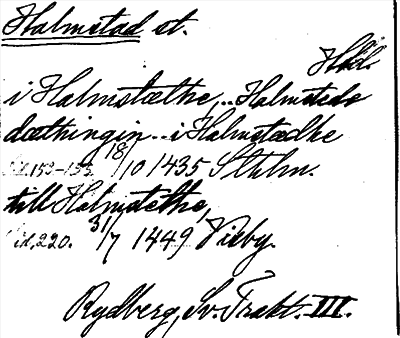 Halmstad st.
Hlld.
i Halmstæthe, .. Halmsteds
dæthingin .. i Halmstædhe
Sid. 153-155. 18/10 1435 Sthlm.
till Halmstethe,
Sid. 220. 31/7 1449 Visby.
Rydberg, Sv. Trakt. III.